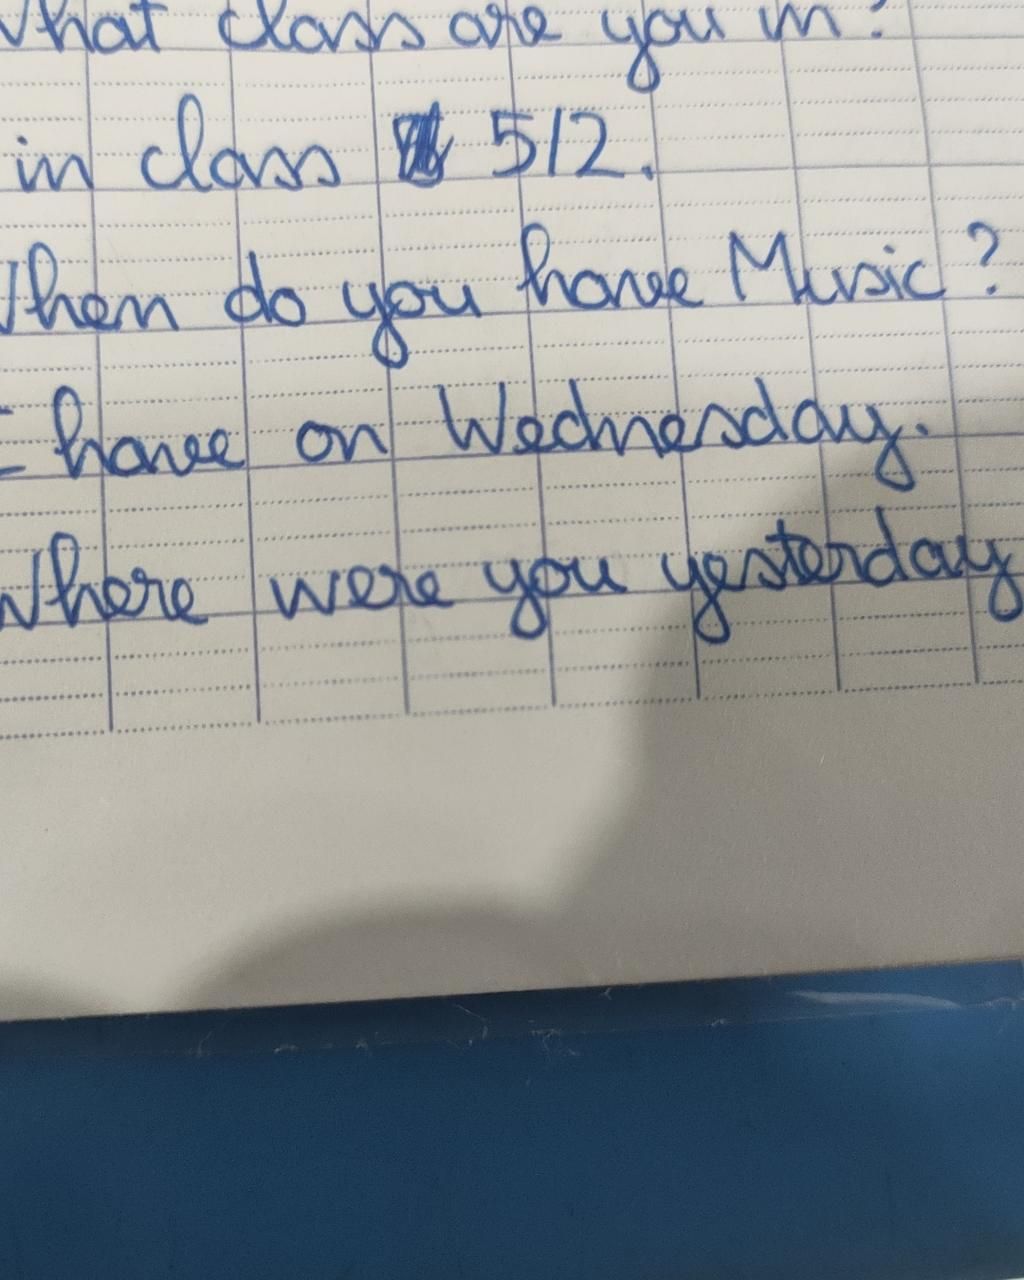 What class are you in?
in class 512.
When do you have Music?
I have on Wednesday.
Where were you yesterday